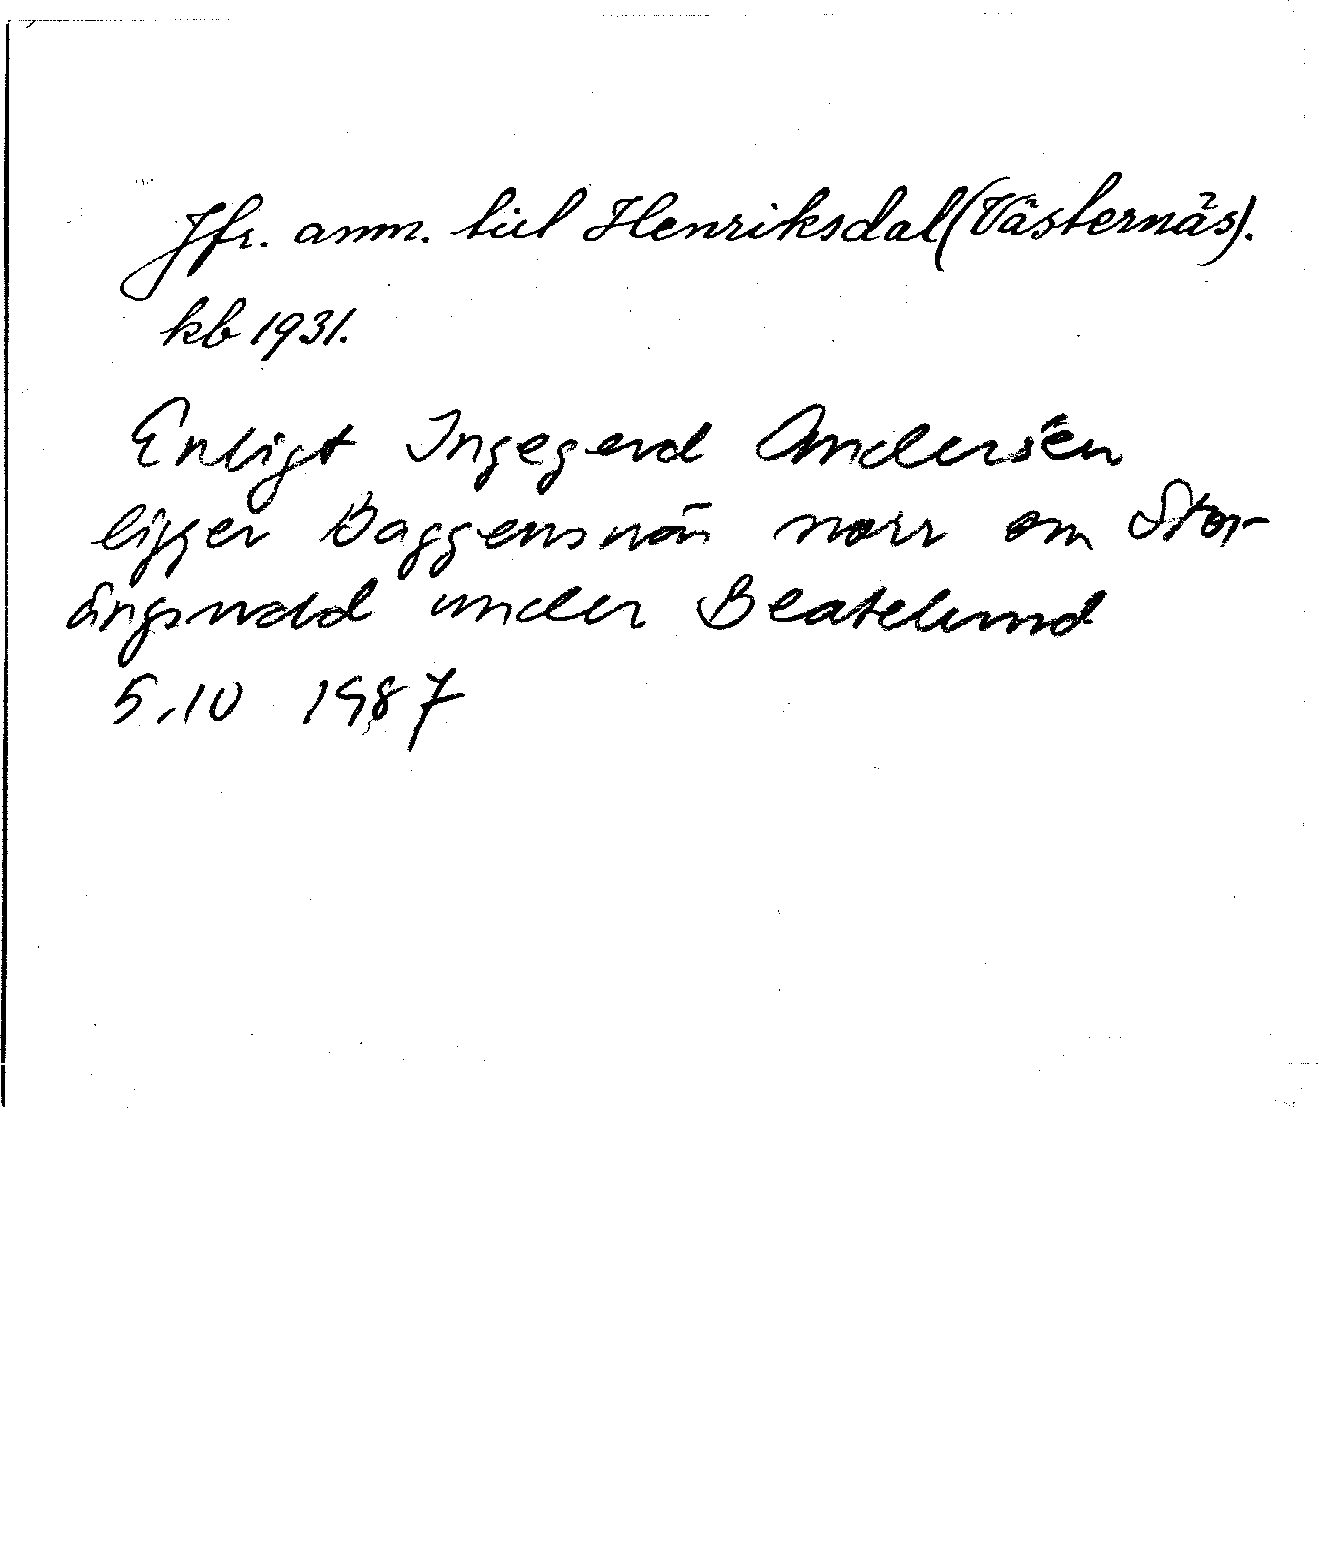 Jfr. anm. till Henriksdal (Västernäs).
kb 1931.
Enligt Ingegerd Andersén
ligger Baggensnäs norr om Stor-
ängsudd under Beatelund
5.10 1987